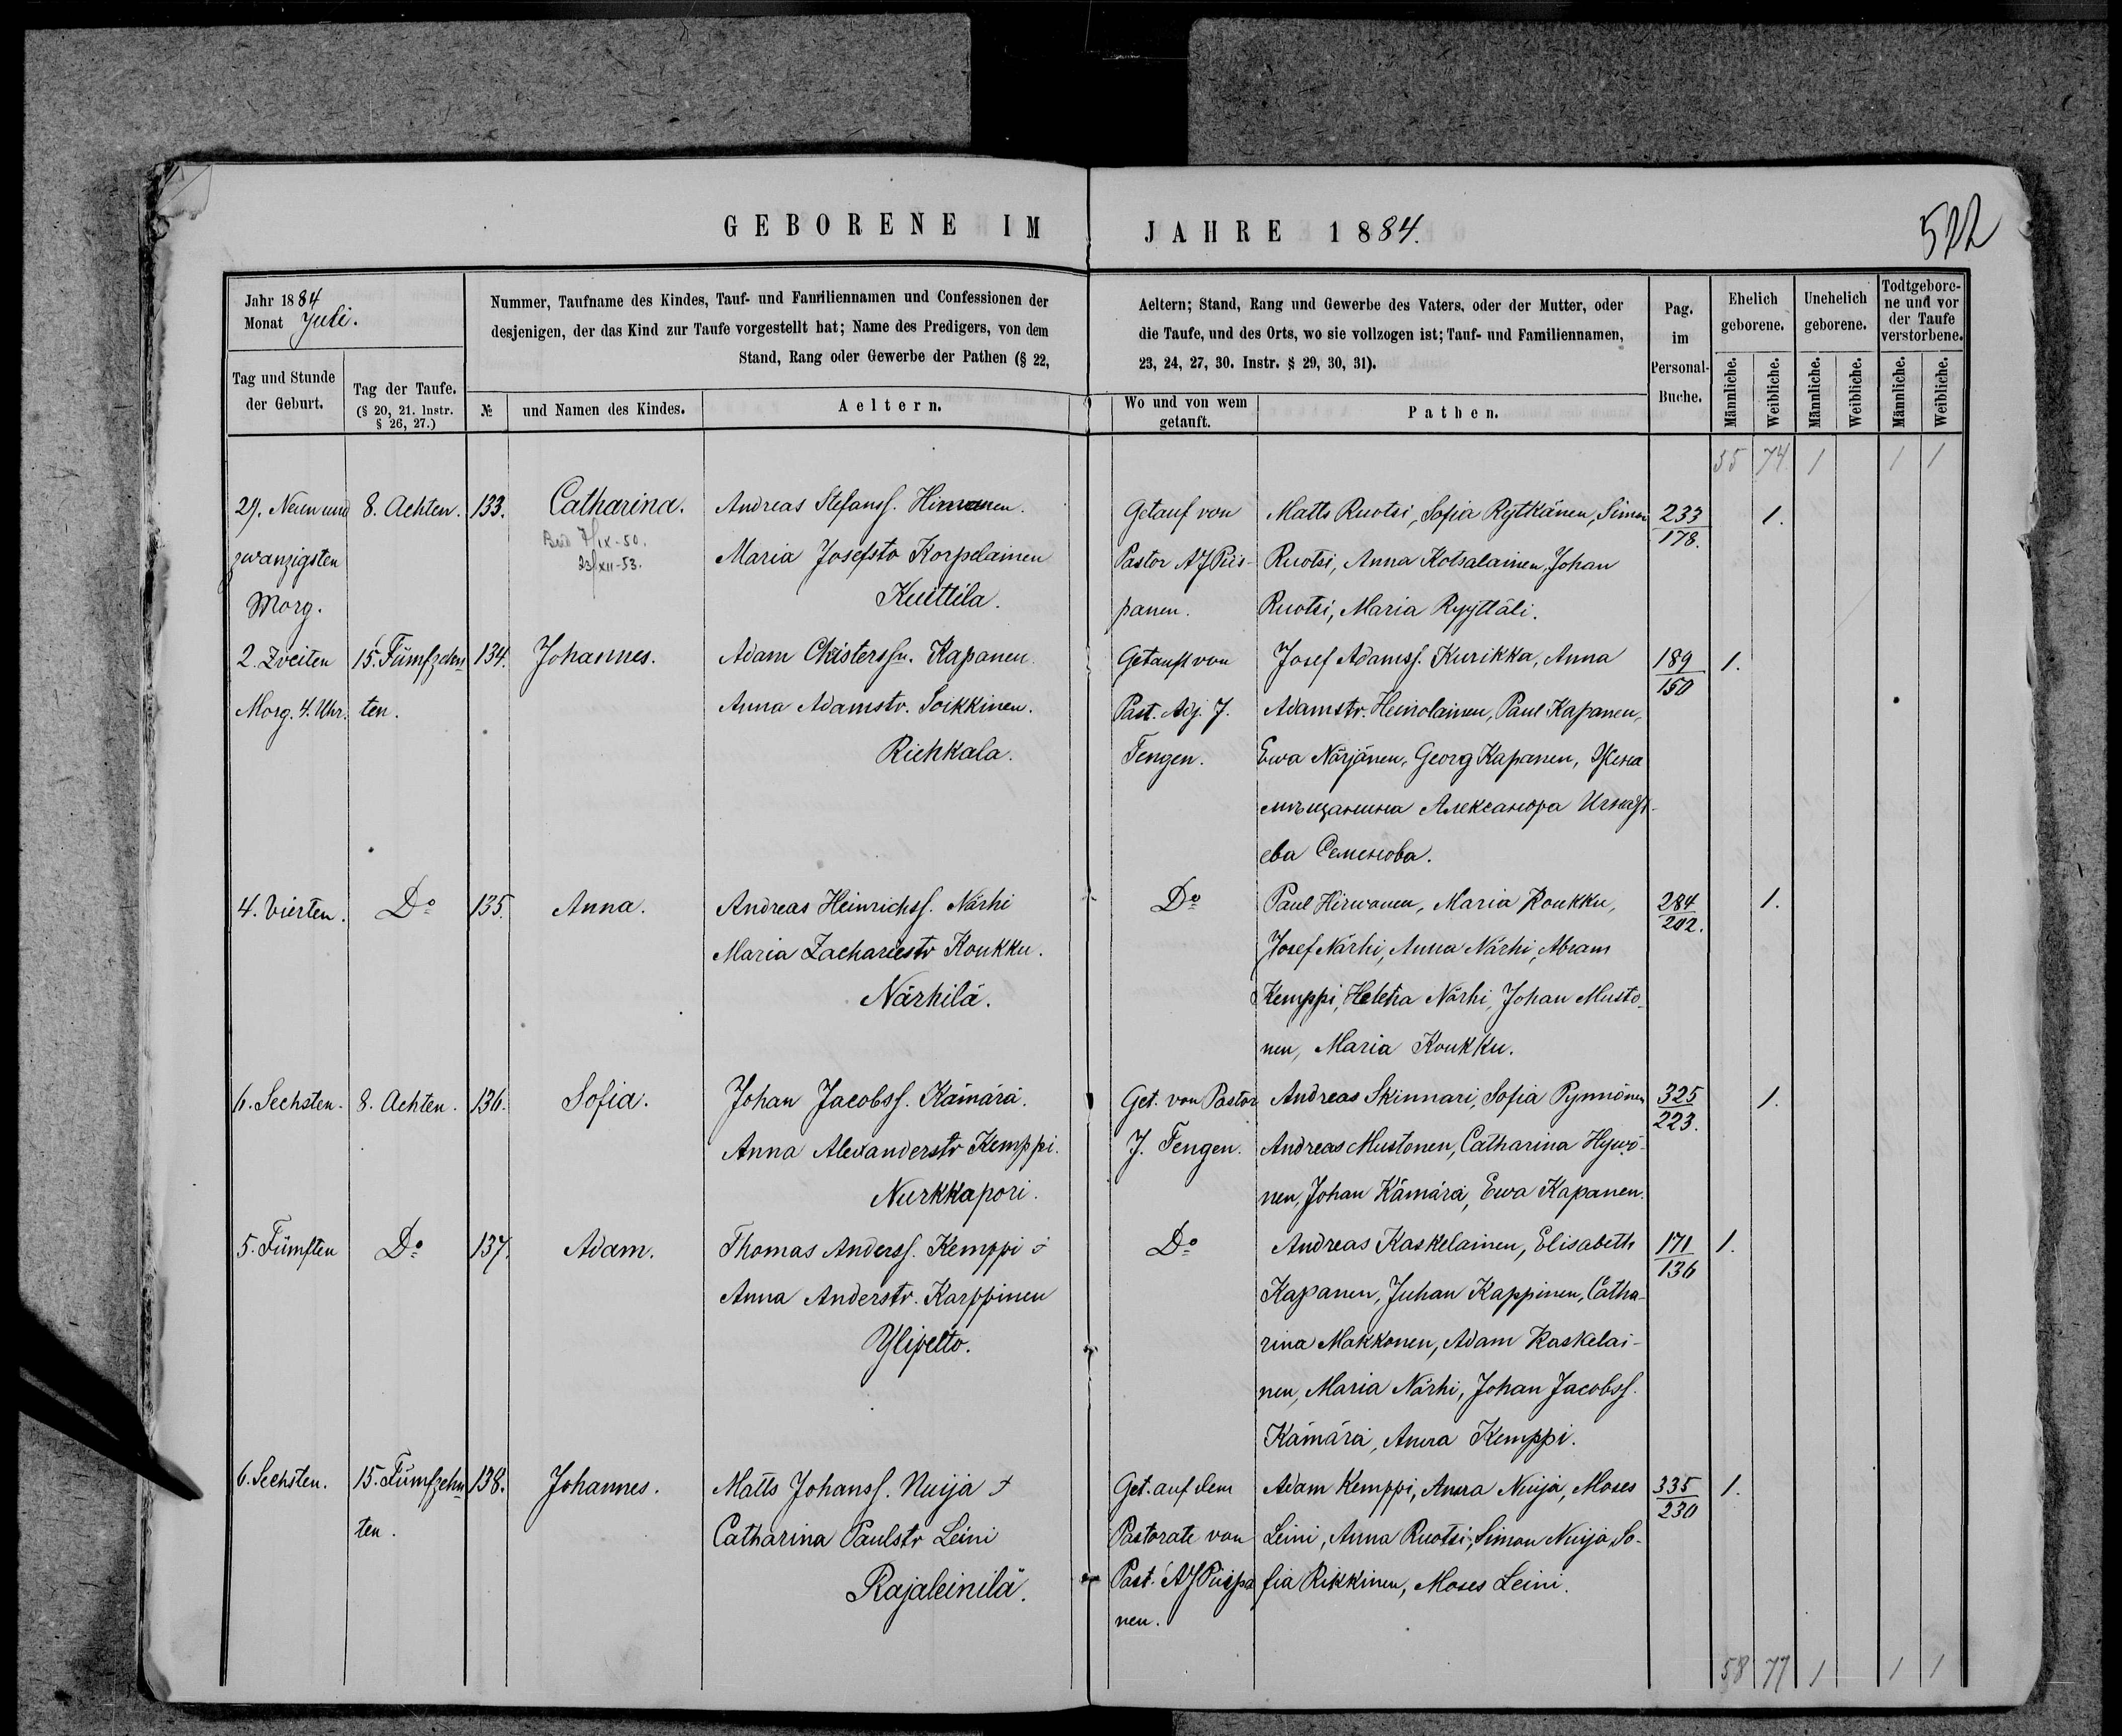 GEBORENE IM JAHRE 1884.
522
Jahr 1884
Monat Juli.
Nummer, Taufname des Kindes, Tauf- und Familiennamen und Confessionen der
desjenigen, der das Kind zur Taufe vorgestellt hat; Name des Predigers, von dem
Stand, Rang oder Gewerbe der Pathen (§ 22,
Aeltern; Stand, Rang und Gewerbe des Vaters, oder der Mutter, oder
die Taufe, und des Orts, wo sie vollzogen ist; Tauf- und Familiennamen,
23, 24, 27, 30. Instr. § 29, 30, 31).
Pag.
im
Personal-
Buche.
Ehelich
geborene.
Unehelich
geborene.
Todtgebore-
ne und vor
der Taufe
verstorbene.
Tag und Stunde
der Geburt.
Tag der Taufe.
(§ 20, 21. Instr.
§ 26, 27.)
№
und Namen des Kindes.
Aeltern.
Wo und von wem
getauft.
Pathen.
Männliche.
Weibliche.
Männliche.
Weibliche.
Männliche.
Weibliche.
55 74 1 1 1
29. Neun und
zwanzigsten
Morg.
8. Achten.
133.
Catharina.
7/IX-50.
23/XII-53.
Andreas Stefanss. Hirwonen.
Maria Josefstr Korpelainen
Kuittila.
Getauf von
Pastor A J Piis-
panen.
Matts Ruotsi, Sofia Rytkänen, Simon
Ruotsi, Anna Kotsalainen, Johan
Ruotsi, Maria Ryyttäli.
233
178.
1.
2. Zweiten
Morg. 4. Uhr.
15. Fümfzehn
ten.
134.
Johannes.
Adam Christerssn. Kapanen.
Anna Adamstr. Soikkinen.
Riehkala.
Getauft von
Past. Adj. J.
Tengen.
Josef Adamss. Kurikka, Anna
Adamstr. Heinolainen, Paul Kapanen,
Ewa Närjänen, Georg Kapanen, Жена
мѣщанина Александра Игнать-
ева Семенова.
189
150
1.
4. Vierten.
Do
135.
Anna.
Andreas Heinrichss. Närhi
Maria Zachariestr Koukku.
Närhilä.
Do
Paul Hirwonen, Maria Koukku,
Josef Närhi, Anna Närhi, Abram
Kemppi, Helena Närhi, Johan Musto-
nen, Maria Koukku.
284
202.
1.
6. Sechsten.
8. Achten.
136.
Sofia.
Johan Jacobss. Kämärä.
Anna Alexanderstr Kemppi.
Nurkkapori.
Get. von Pastor
J. Tengen.
Andreas Skinnari, Sofia Pynnönen
Andreas Mustonen, Catharina Hywö-
nen, Johan Kämärä, Ewa Kapanen.
325
223.
1.
5. Fümften
Do
137.
Adam.
Thomas Anderss. Kemppi
Anna Anderstr. Karppinen
Ylipelto.
Do
Andreas Kaskelainen, Elisabeth
Kapanen, Juhan Kappinen, Catha-
rina Makkonen, Adam Kaskelai-
nen, Maria Närhi, Johan Jacobss.
Kämärä, Anna Kemppi.
171
136
1.
6. Sechsten.
15. Fümfzehn
ten.
138.
Johannes.
Matts Johanss. Nuija
Catharina Paulstr Leini
Rajaleinilä.
Get. auf dem
Pastorate von
Past. A J Piispa
nen.
Adam Kemppi, Anna Nuija, Moses
Leini, Anna Ruotsi, Simon Nuija, So-
fia Rikkinen, Moses Leini.
335
230
1.
58 77 1 1 1